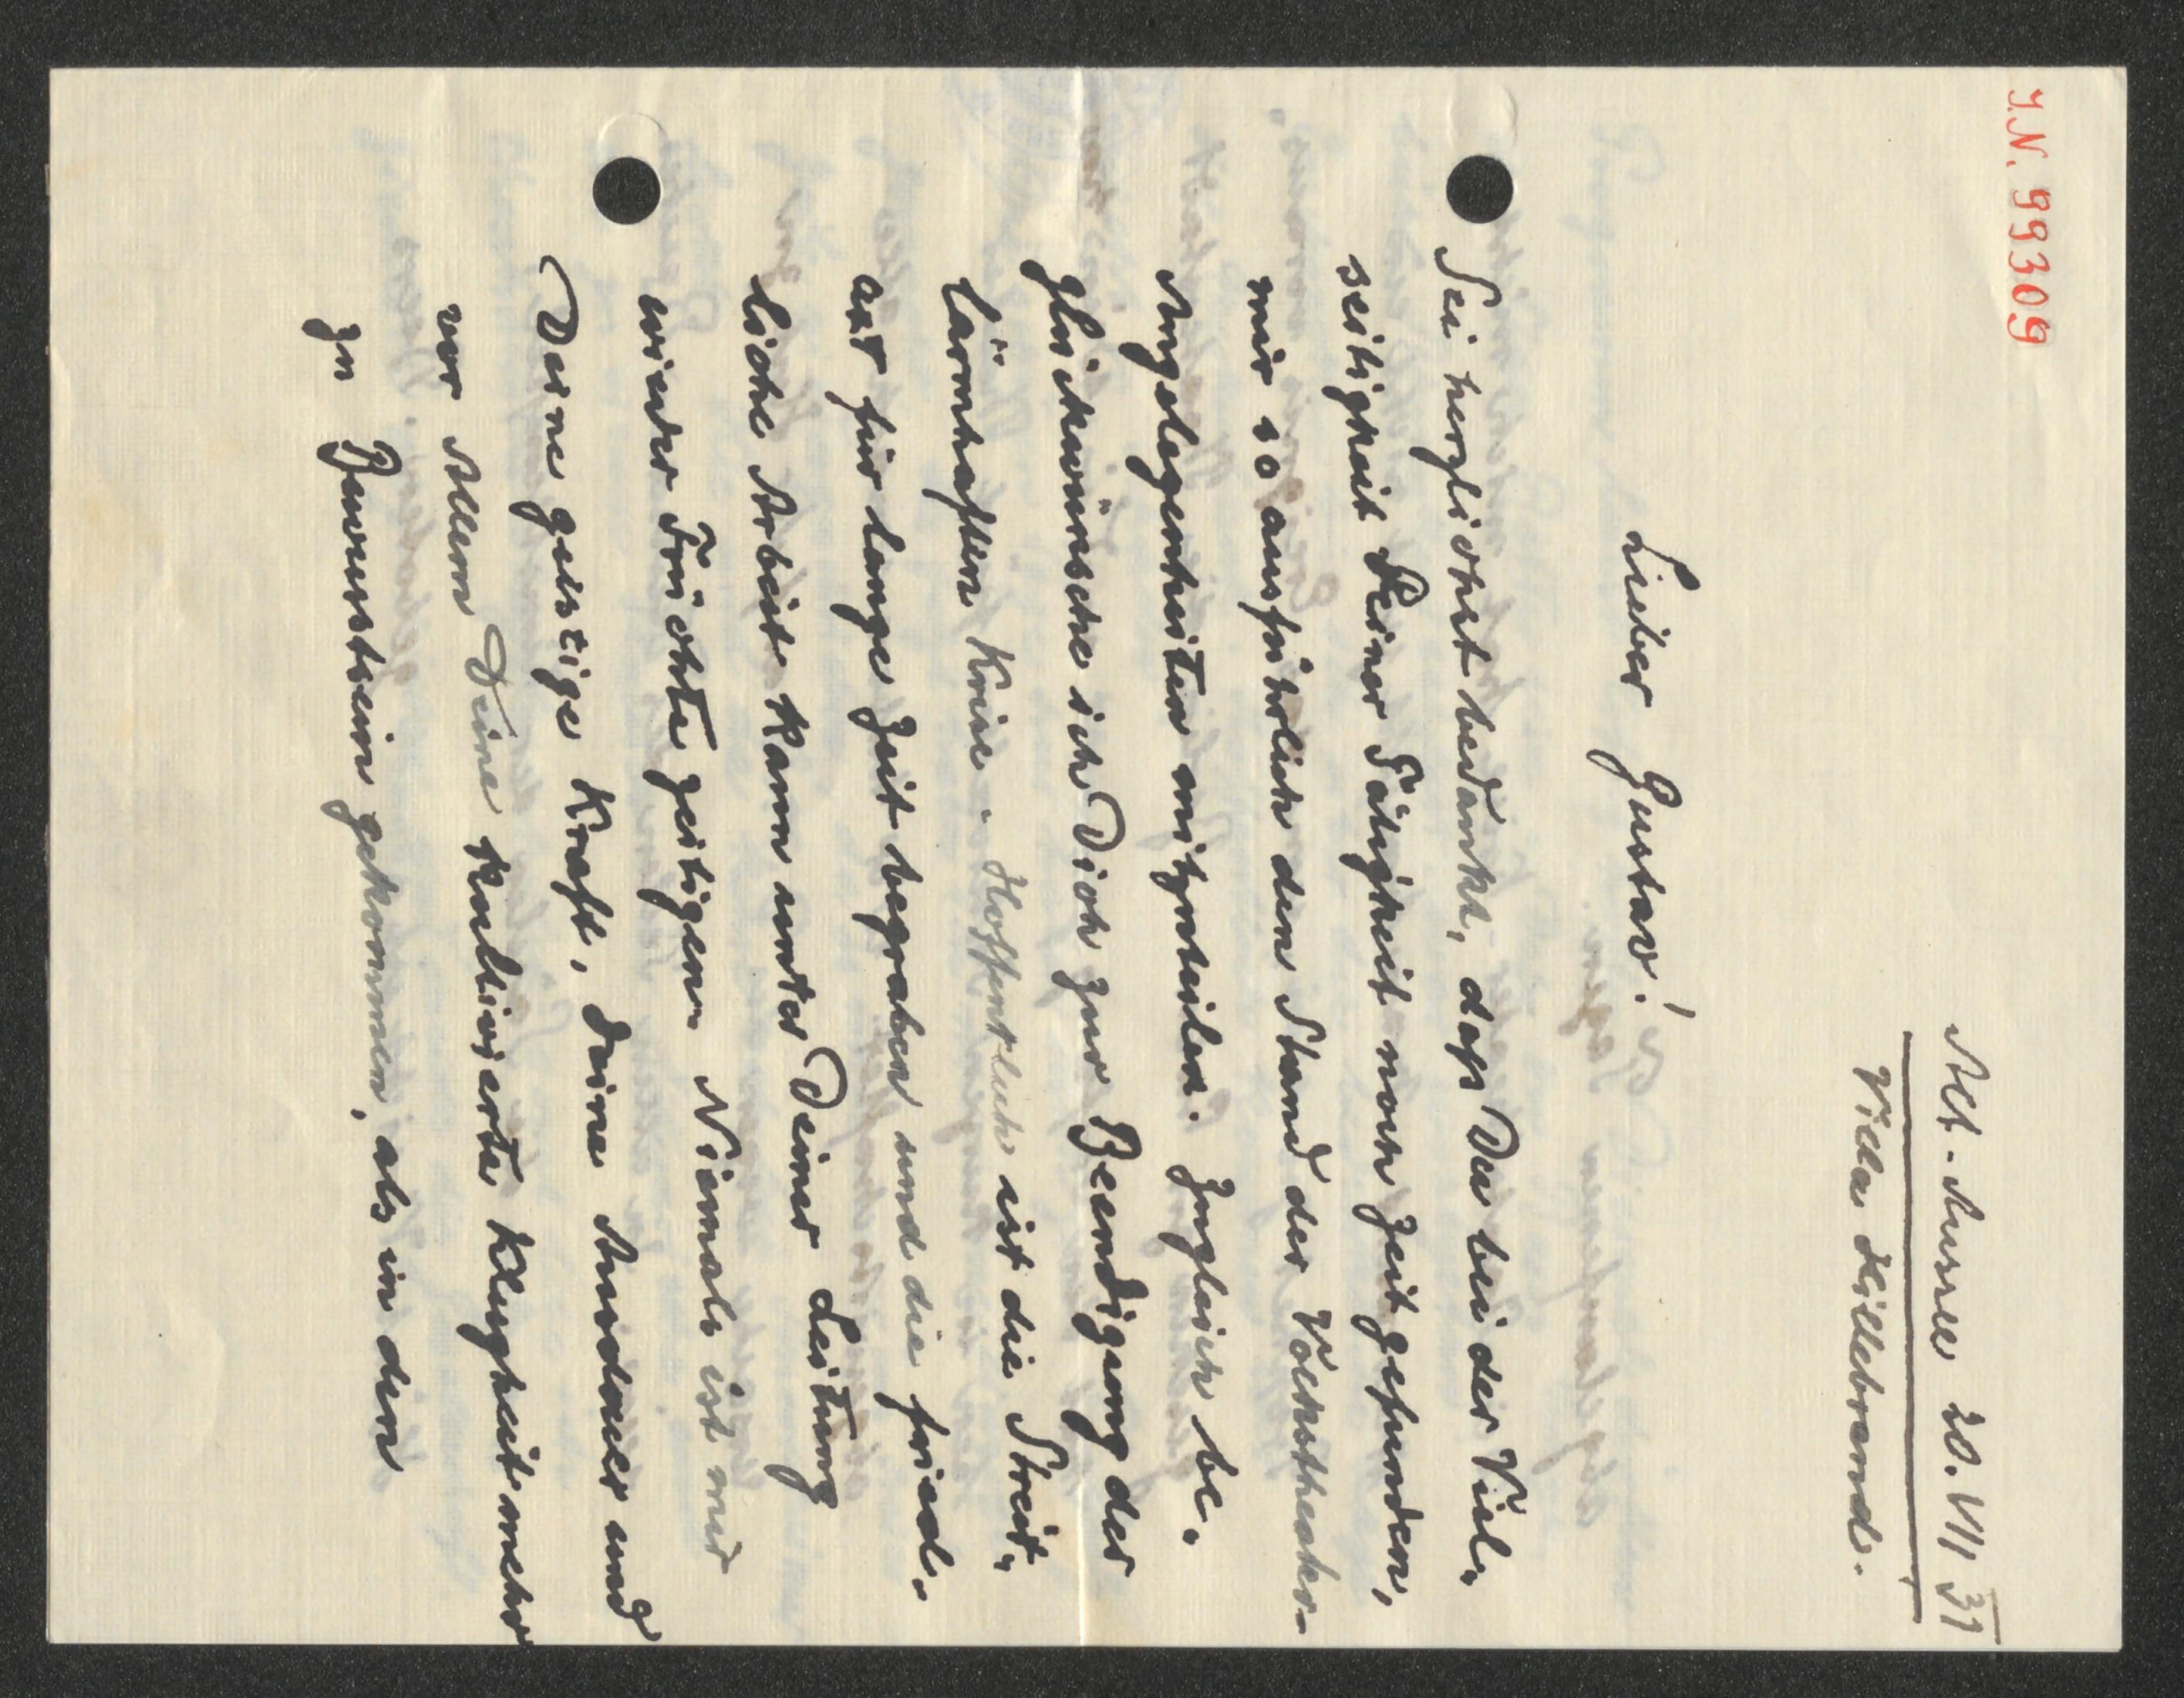 I.N. 99309
Alt-Aussee 20. VII 31
Villa Hillebrand.
Lieber Gustav!
Sei herzlichst bedankt, dass Du bei der Viel-
seitigkeit Deiner Tätigkeit noch Zeit gefunden,
mir so ausführlich den Stand der Volkstheater-
Angelegenheiten mitzuteilen. Zugleich be-
glückwünsche ich Dich zur Beendigung der
lärmhaften Krise. Hoffentlich ist die Streit-
axt für lange Zeit begraben und die fried-
liche Arbeit kann unter Deiner Leitung
wieder Früchte zeitigen. Niemals ist mir
Deine geistige Kraft, Deine Ausdauer und
vor Allem Deine kultivierte Klugheit mehr
zu Bewusstsein gekommen, als in den